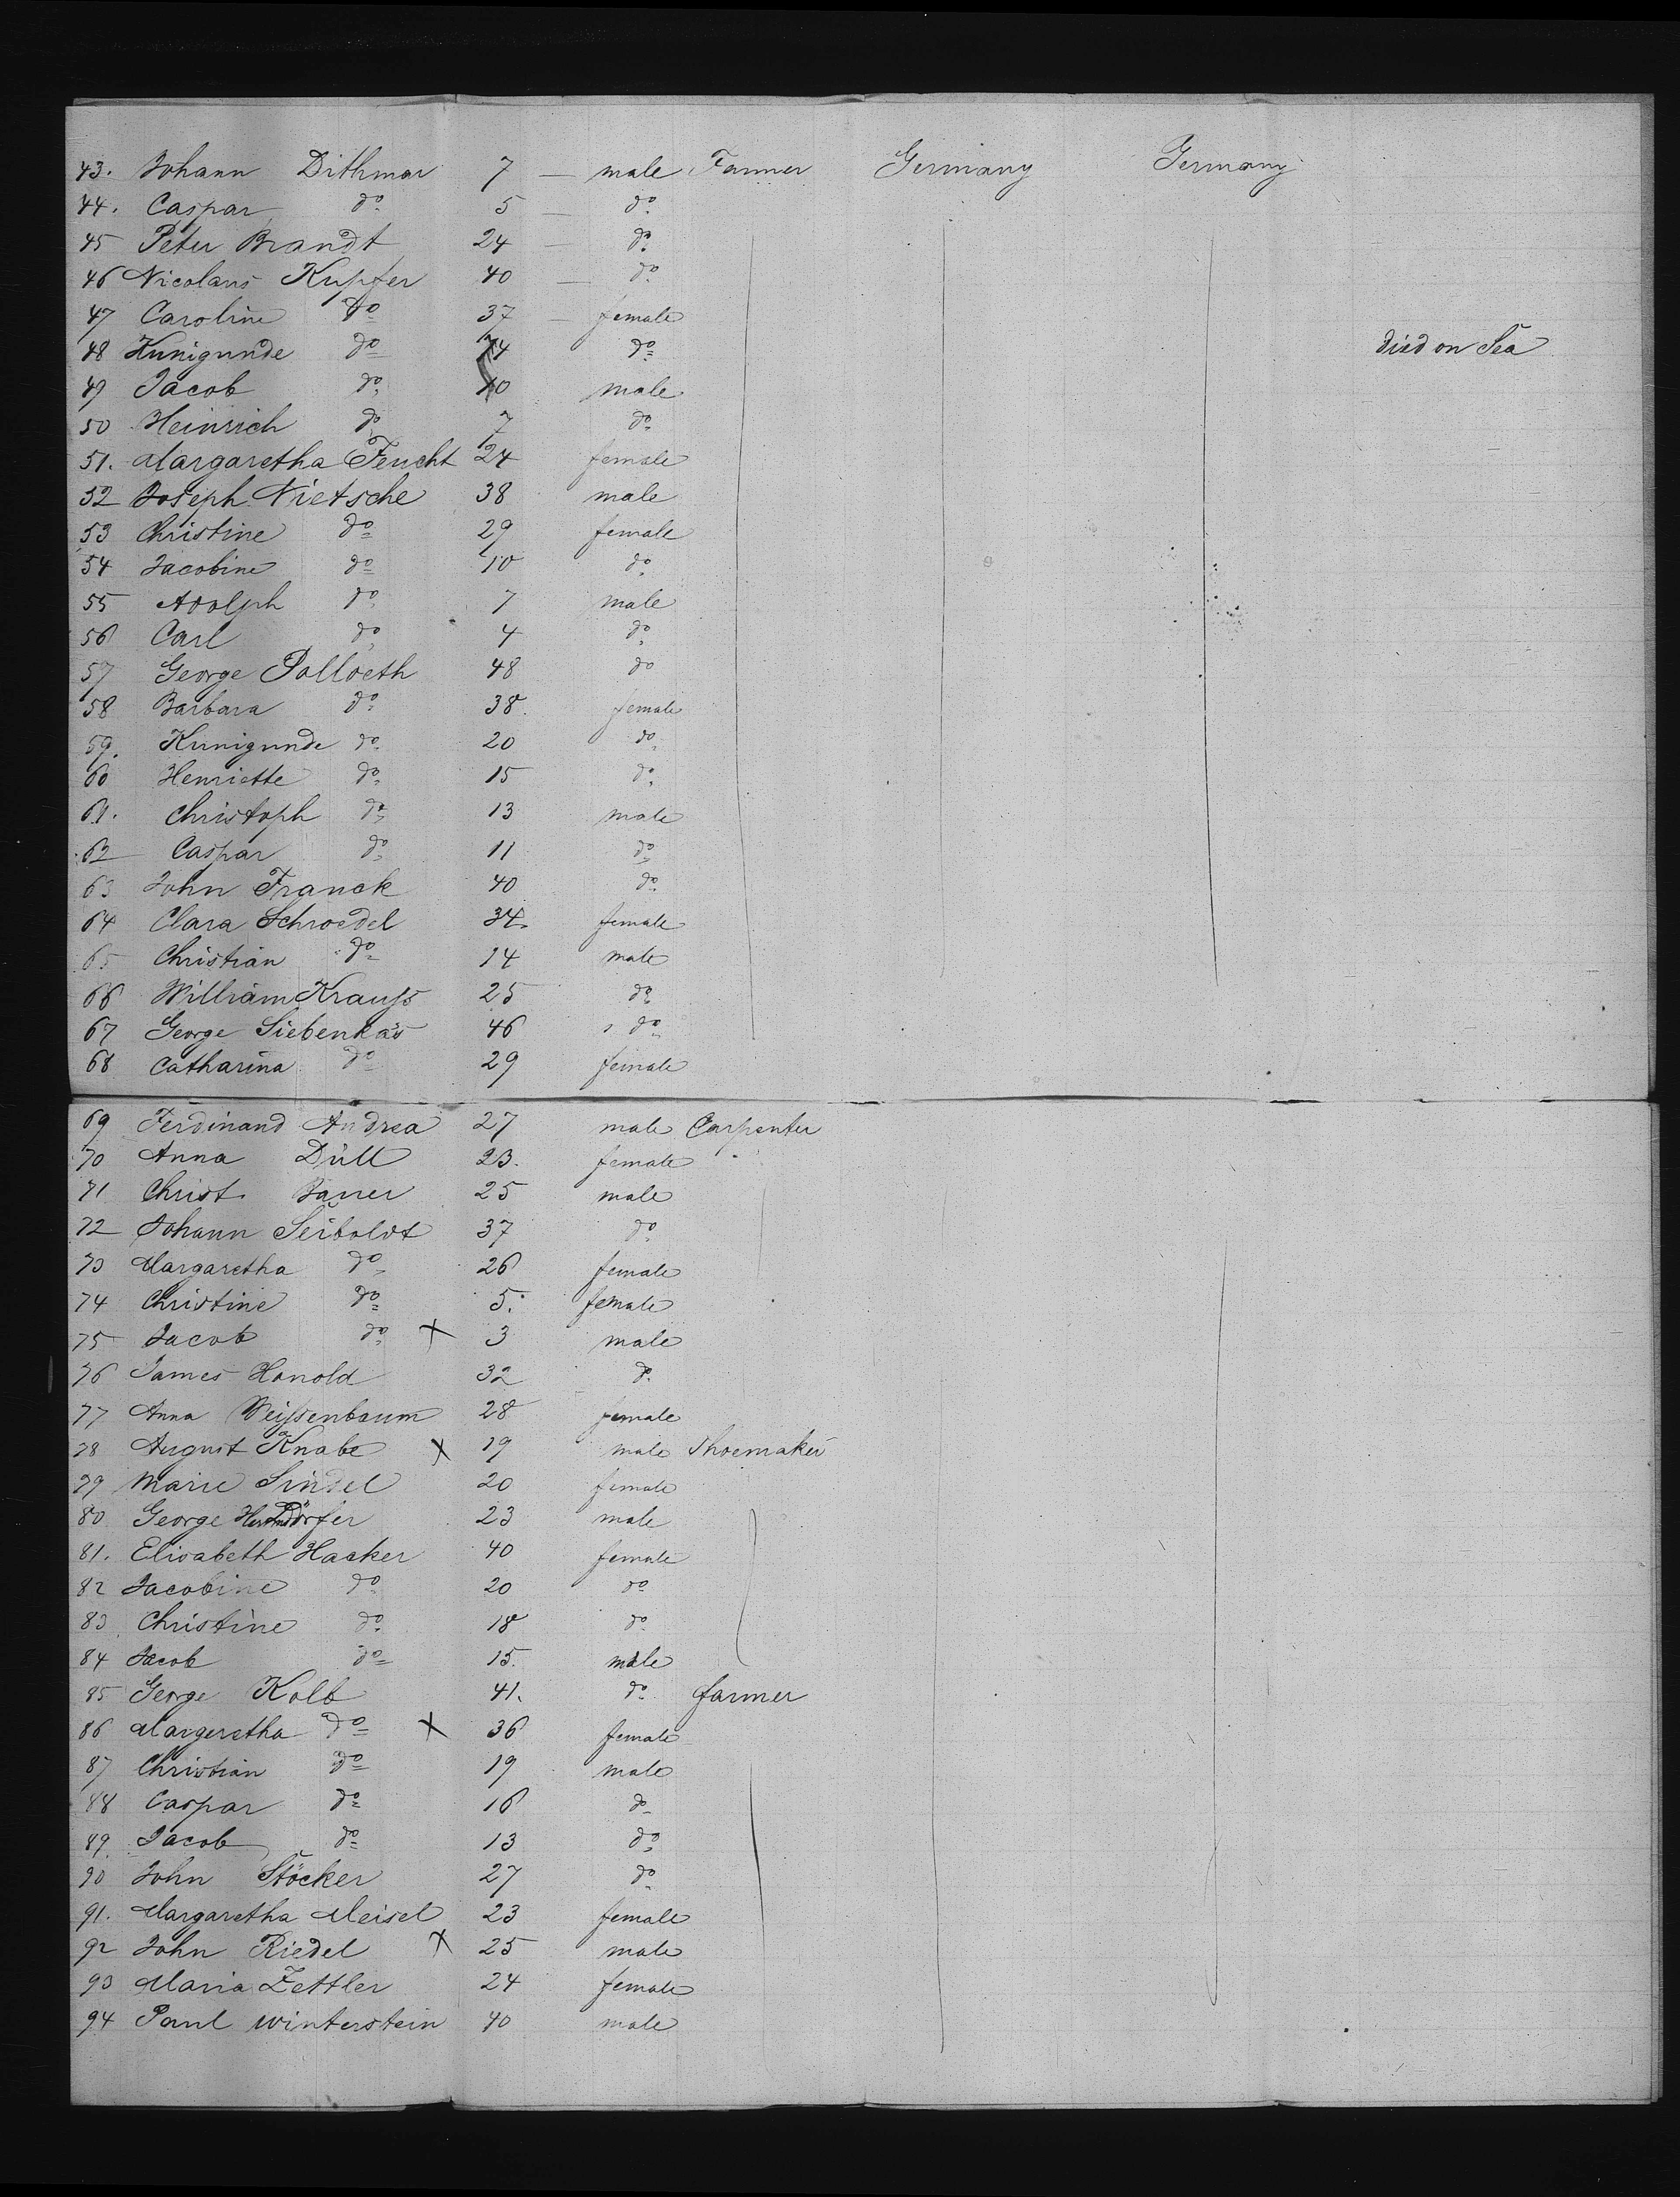 43. Johann Dithmar 7 — male Farmer Germany Germany
44. Caspar do 5 — do
45 Peter Brandt 24 — do
46 Nicolaus Kupfer 40 — do
47 Caroline do 37 — female
48 Kunigunde do 14 do died on Sea
49 Jacob do 10 male
50 Heinrich do 7 do
51. Margaretha Feucht 24 female
52 Joseph Nietsche 38 male
53 Christine do 29 female
54 Jacobine do 10 do
55 Adolph do 7 male
56 Carl do 4 do
57 George Pollveth 48 do
58 Barbara do 38. female
59. Kunigunde do 20 do
60 Henriette do 15 do
61. Christoph do 13 male
62 Caspar do 11 do
63 John Franck 40 do
64 Clara Schroedel 34. female
65 Christian do 14 male
66 William Krauß 25 do
67 George Siebenkäs 46 do
68 Catharina do 29 female
69 Ferdinand Andrea 27 male Carpenter
70 Anna Düll 23. female
71 Christ. Bauer 25 male
72 Johann Seiboldt 37 do
73 Margaretha do 26 female
74 Christine do 5. female
75 Jacob do X 3 male
76 James Hanold 32 do
77 Anna Weißenbaum 28 female
78 August Knabe X 19 male Shoemaker
79 Marie Sindel 20 female
80 George 23 male
81. Elisabeth Hacker 40 female
82 Jacobine do 20 do
83 Christine do 18 do
84 Jacob do 15. male
85 George Kolb 41. do farmer
86 Margeretha do X 36 female
87 Christian do 19 male
88 Caspar do 16 do
89. Jacob do 13 do
90 John Stöcker 27 do
91. Margaretha Meisel 23 female
92 John Riedel X 25 male
93 Maria Zettler 24 female
94 Paul Winterstein 40 male